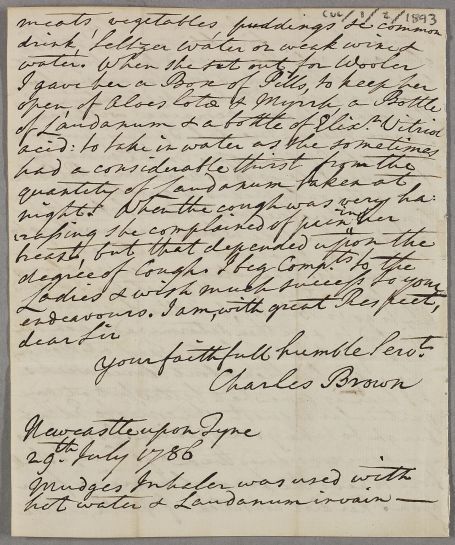 CUL/1/2/1893
meats, vegetables, puddings & common
drink, Seltzer Water or weak wine &
water. When she set out for Wooler
I gave her a Box of Pills, to keep her
open, of Aloes lota & Myrrh, a Bottle
of Laudanum & a bottle of Elixr. Vitriol
acid: to take in water as she sometimes
had a considerable thirst from the
quantity of Laudanum taken at
night. When the cough was very ha:
:rassing she complained of pain in her
breast, but that depended upon the
degree of Cough. I beg Compts. to the
Ladies & wish much success to your
endeavours. I am, with great Respect,
dear Sir
your faithfull humble Servt.
Charles Brown
Newcastle upon Tyne
29th July 1786
Mudges Inhaler was used with
hot water & Laudanum in vain —